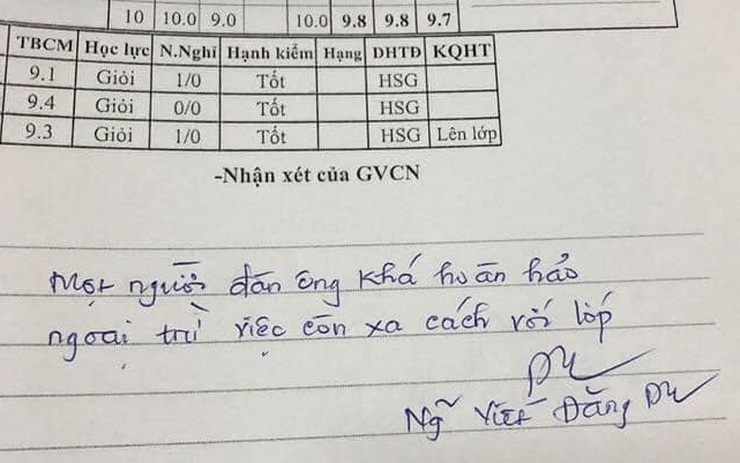 10 10.0 9.0 10.0 9.8 9.8 9.7
TBCM Học lực N.Nghĩ Hạnh kiểm Hạng DHTĐ KQHT
9.1 Giỏi 1/0 Tốt HSG
9.4 Giỏi 0/0 Tốt HSG
9.3 Giỏi 1/0 Tốt HSG Lên lớp
-Nhận xét của GVCN
Một người đàn ông khá hoàn hảo
ngoại trừ việc còn xa cách với lớp
Ngữ Viết Đăng